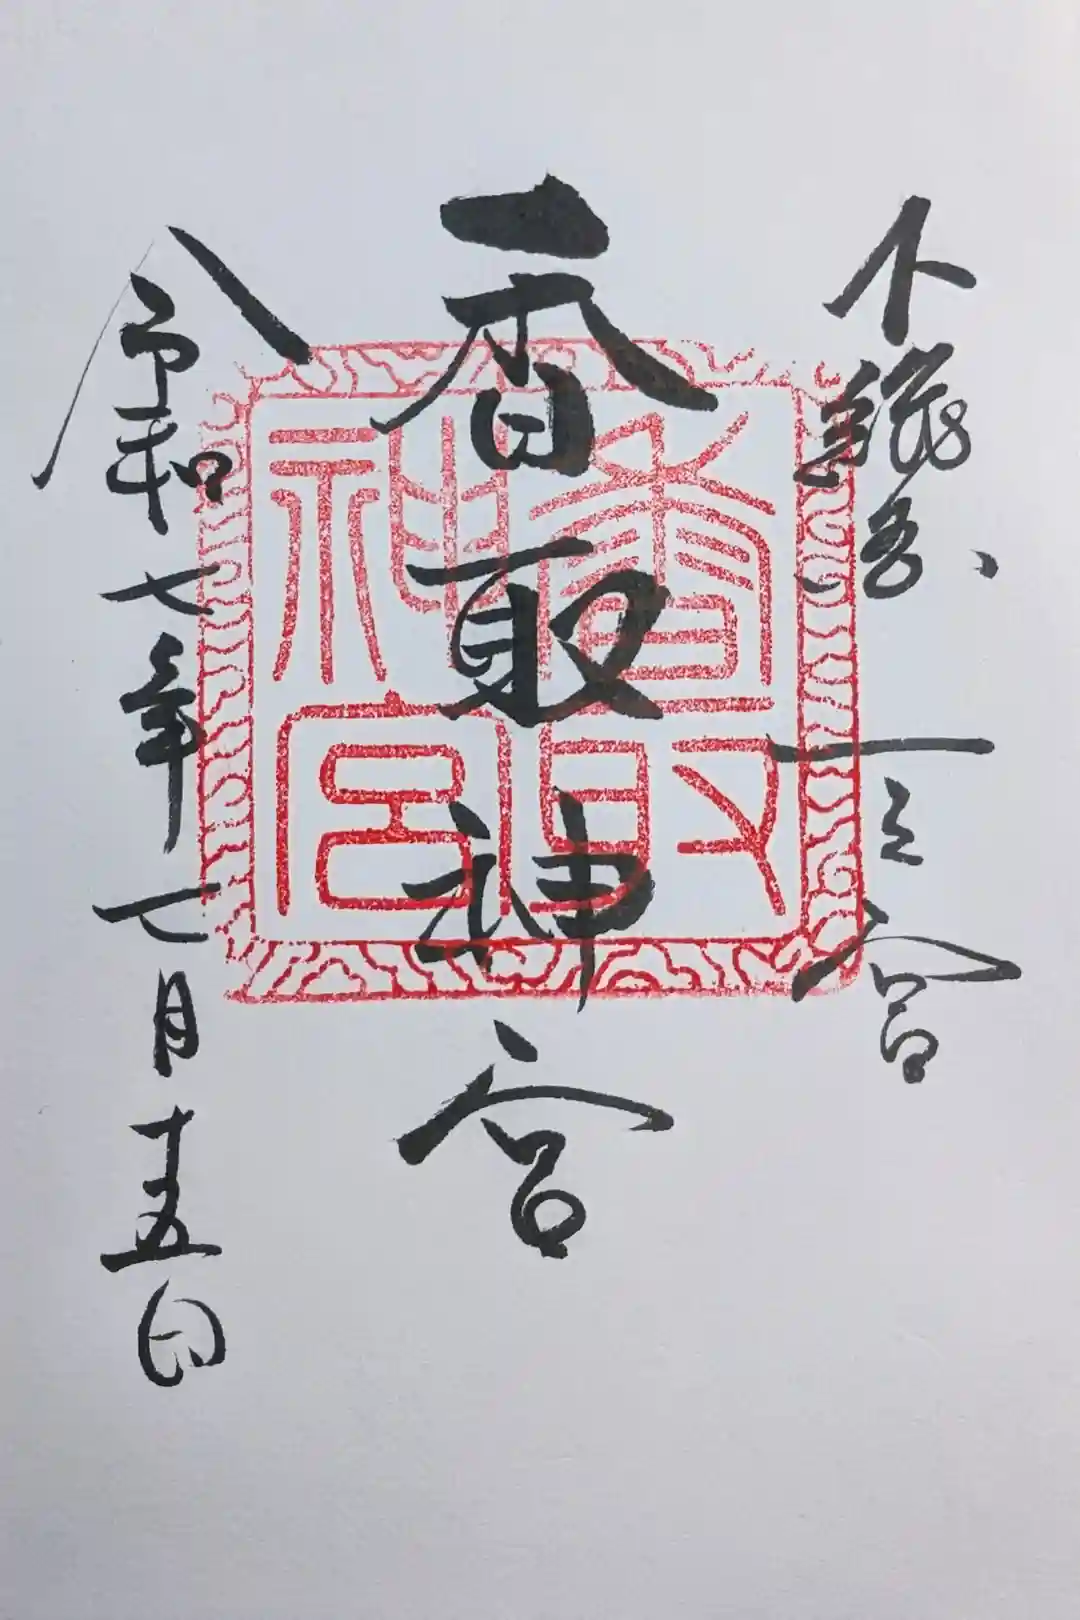 下総国一之宮
香取神宮
令和七年七月十五日
香取神宮